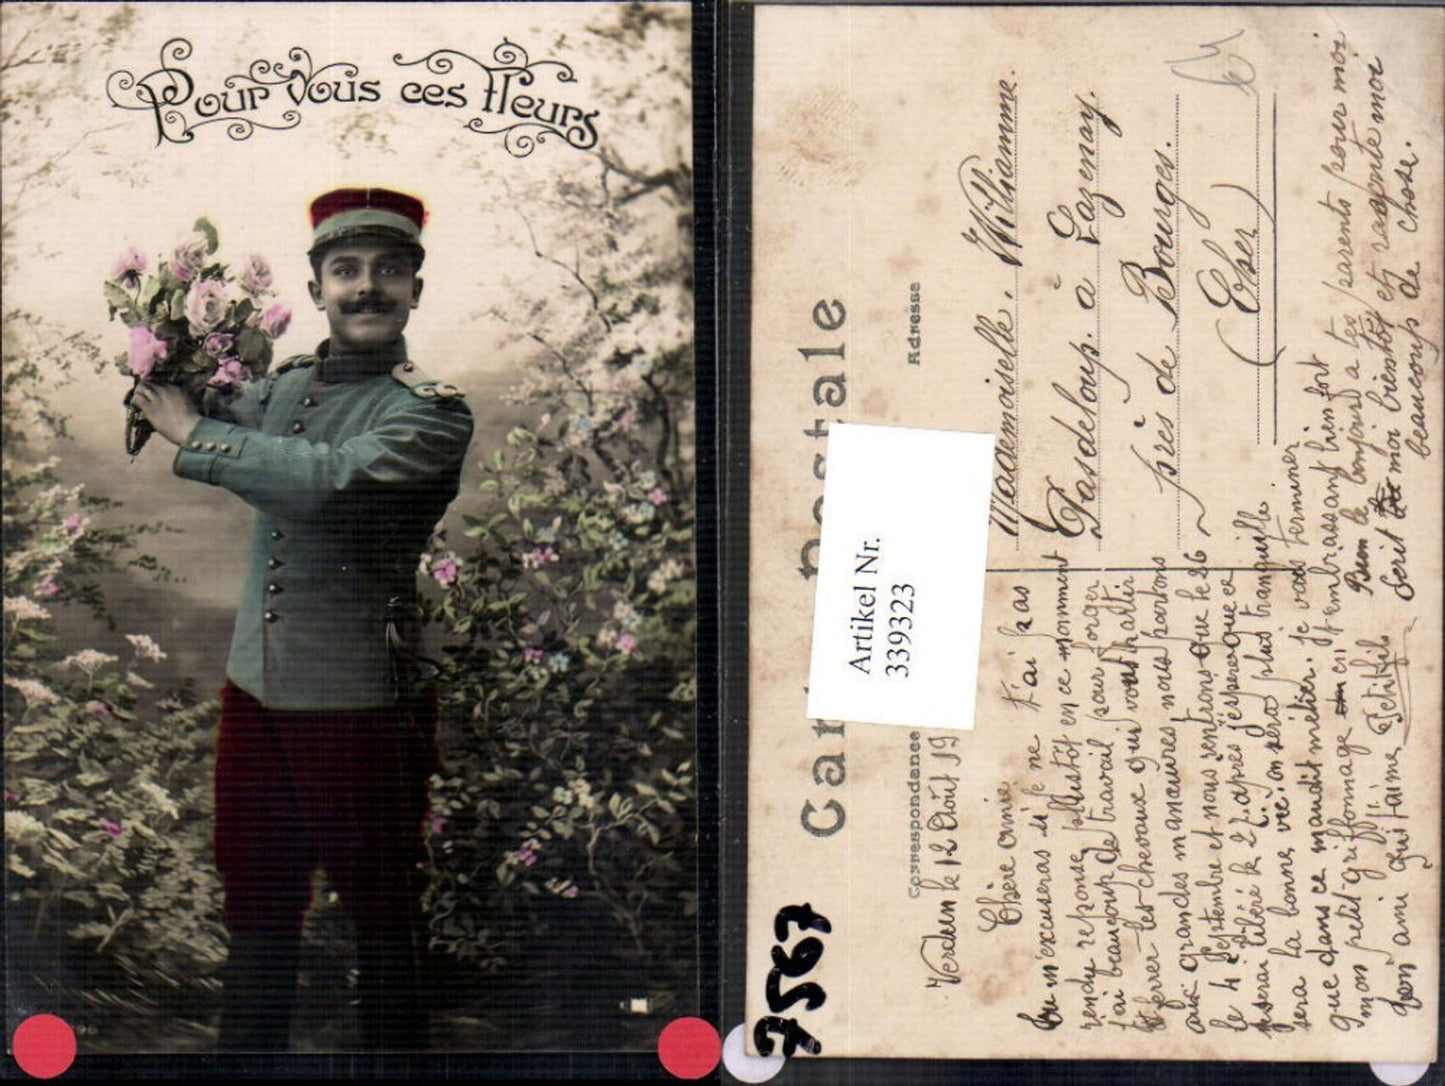 Pour vous ces fleurs
Carte postale
Correspondance
Adresse
Artikel Nr.
339323
7567
Verdun le 12 Août 19
Chère amie
Tu m'excuseras si je ne t'ai pas
rendu reponse plustôt en ce momment
j'ai beaucoup de travail pour forger
et ferrer les chevaux qui vont hattir
aux grandes manœuvres nous partons
le 4 Septembre et nous rentrons que le 26
je serai libéré le 27 après j'espère que ce
sera la bonne vie. on sera plus tranquille.
que dans ce maudit métier. je vais terminer
mon petit griffonnage en t'embrassant bien fort
ton ami qui t'aime Petitfils
Bien le bonjour à tes parents pour moi
Ecrit moi bientôt et raconte moi
beaucoup de chose.
Mademoiselle. Williamme.
Pasdeloup. à Lazenay.
près de Bourges.
(Cher)